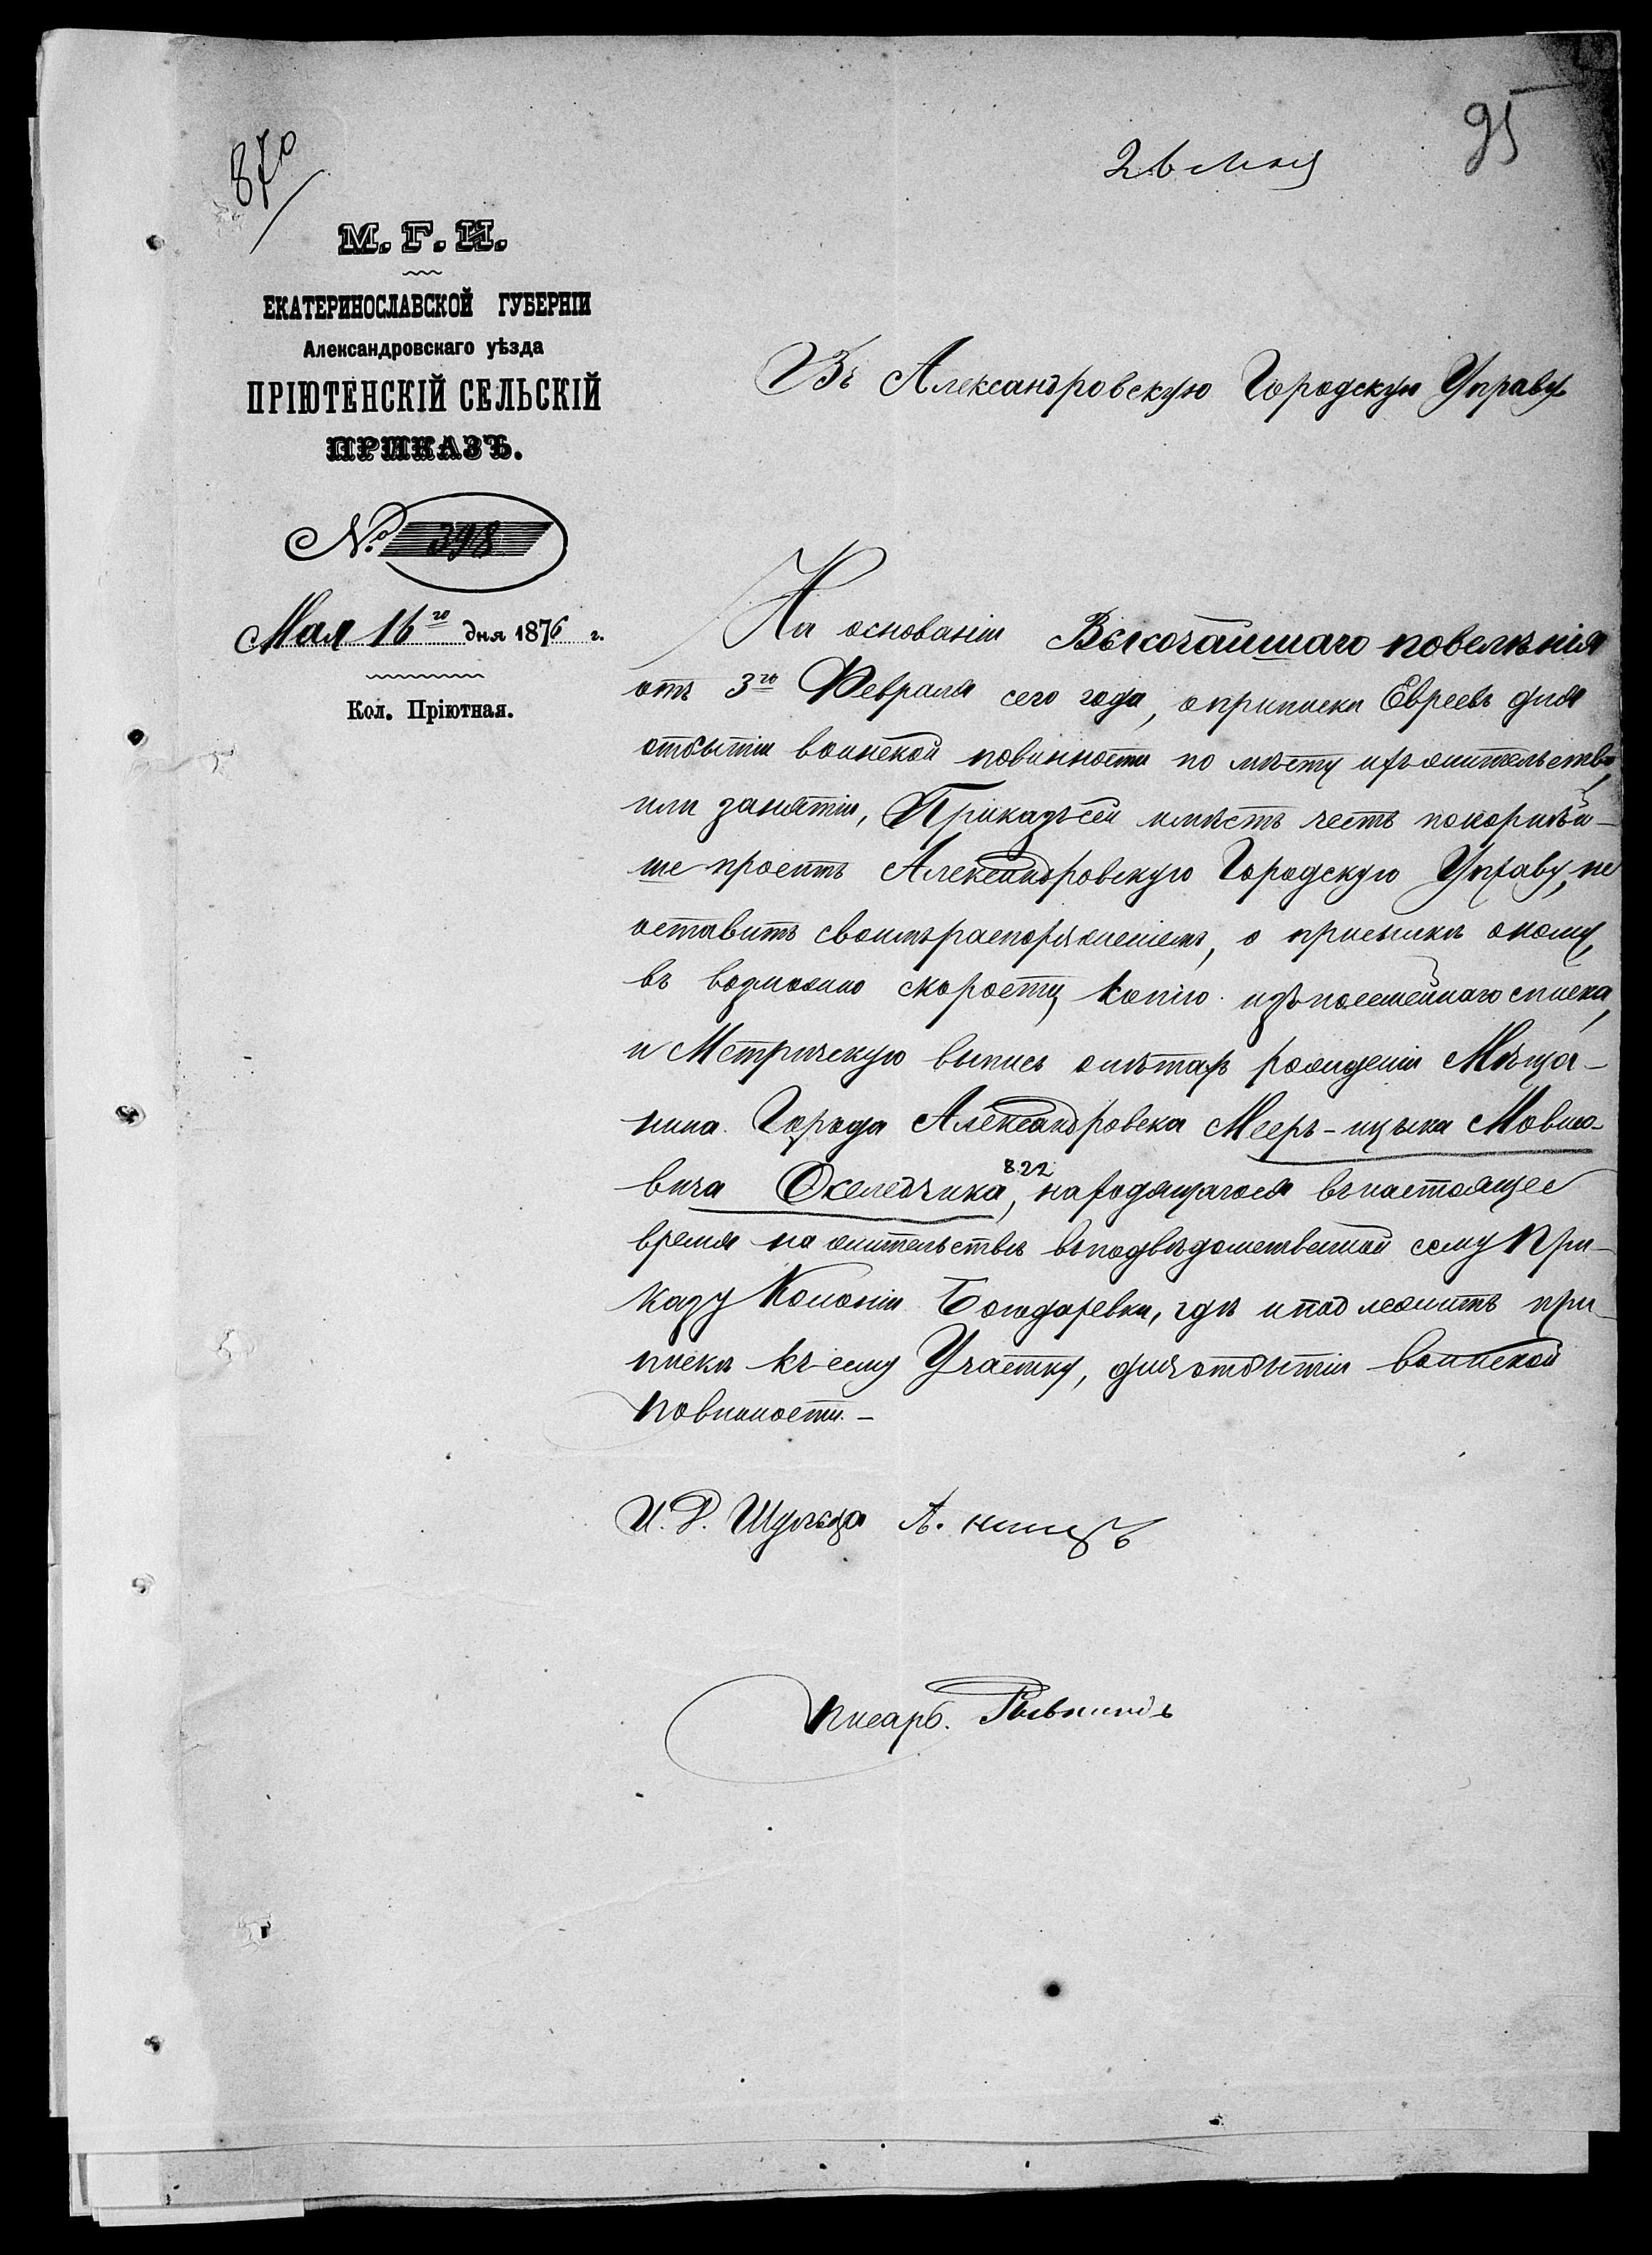 95
26 мая
870
М. Г. И.
ЕКАТЕРИНОСЛАВСКОЙ ГУБЕРНІИ
Александровскаго уѣзда
ПРІЮТЕНСКІЙ СЕЛЬСКІЙ
ПРИКАЗЪ.
№ 398
Мая 16го дня 1876 г.
Кол. Пріютная.
Въ Александровскую Городскую Управу
На основаніи Высочайшаго повелѣнія
отъ 3го Февраля сего года, о приписки Евреевъ для
отбытія воинской повинности по мѣсту ихъ жительства,
или занятія, Приказъ сей имѣетъ честь покорнѣй-
ше проситъ Александровскую Городскую Управу, не
оставить своимъ распоряженіемъ, о присылкѣ оному,
въ возможно скорости, копію изъ посемейнаго списка,
и Метрическую выпись о лѣтахъ рожденія Мѣща-
нина Города Александровска Мееръ-ицыка Мовшо-
вича Окелебчика, 822 находящагося въ настоящее
время на жительствѣ въ подвѣдомственной сему При-
казу Колоніи Бондаревки, гдѣ и подлежитъ при-
писки къ сему Участку, для отбытія воинской
повинности. -
И. Д. Шульца А.
Писарь.